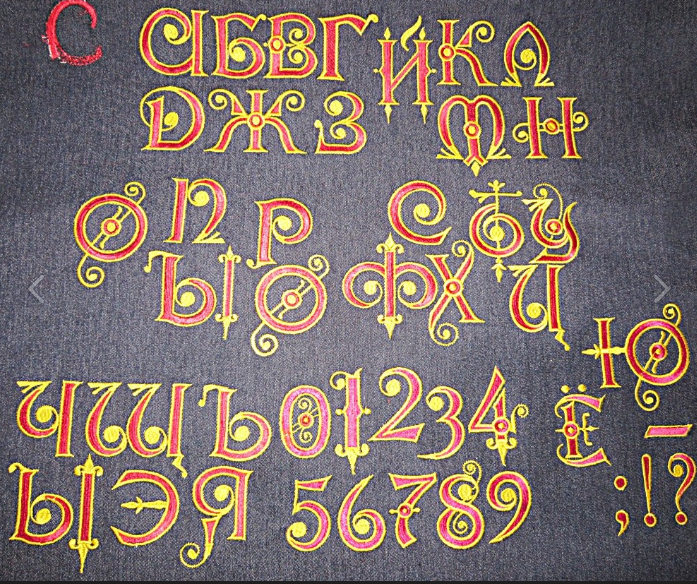 С АБВГИКЛ
ДЖЗ МН
О П Р С Т У
Ы О Ф Х Ц
Ю
ЧЩЪ 01234 Ё -
ЫЭЯ 56789 ; ! ?